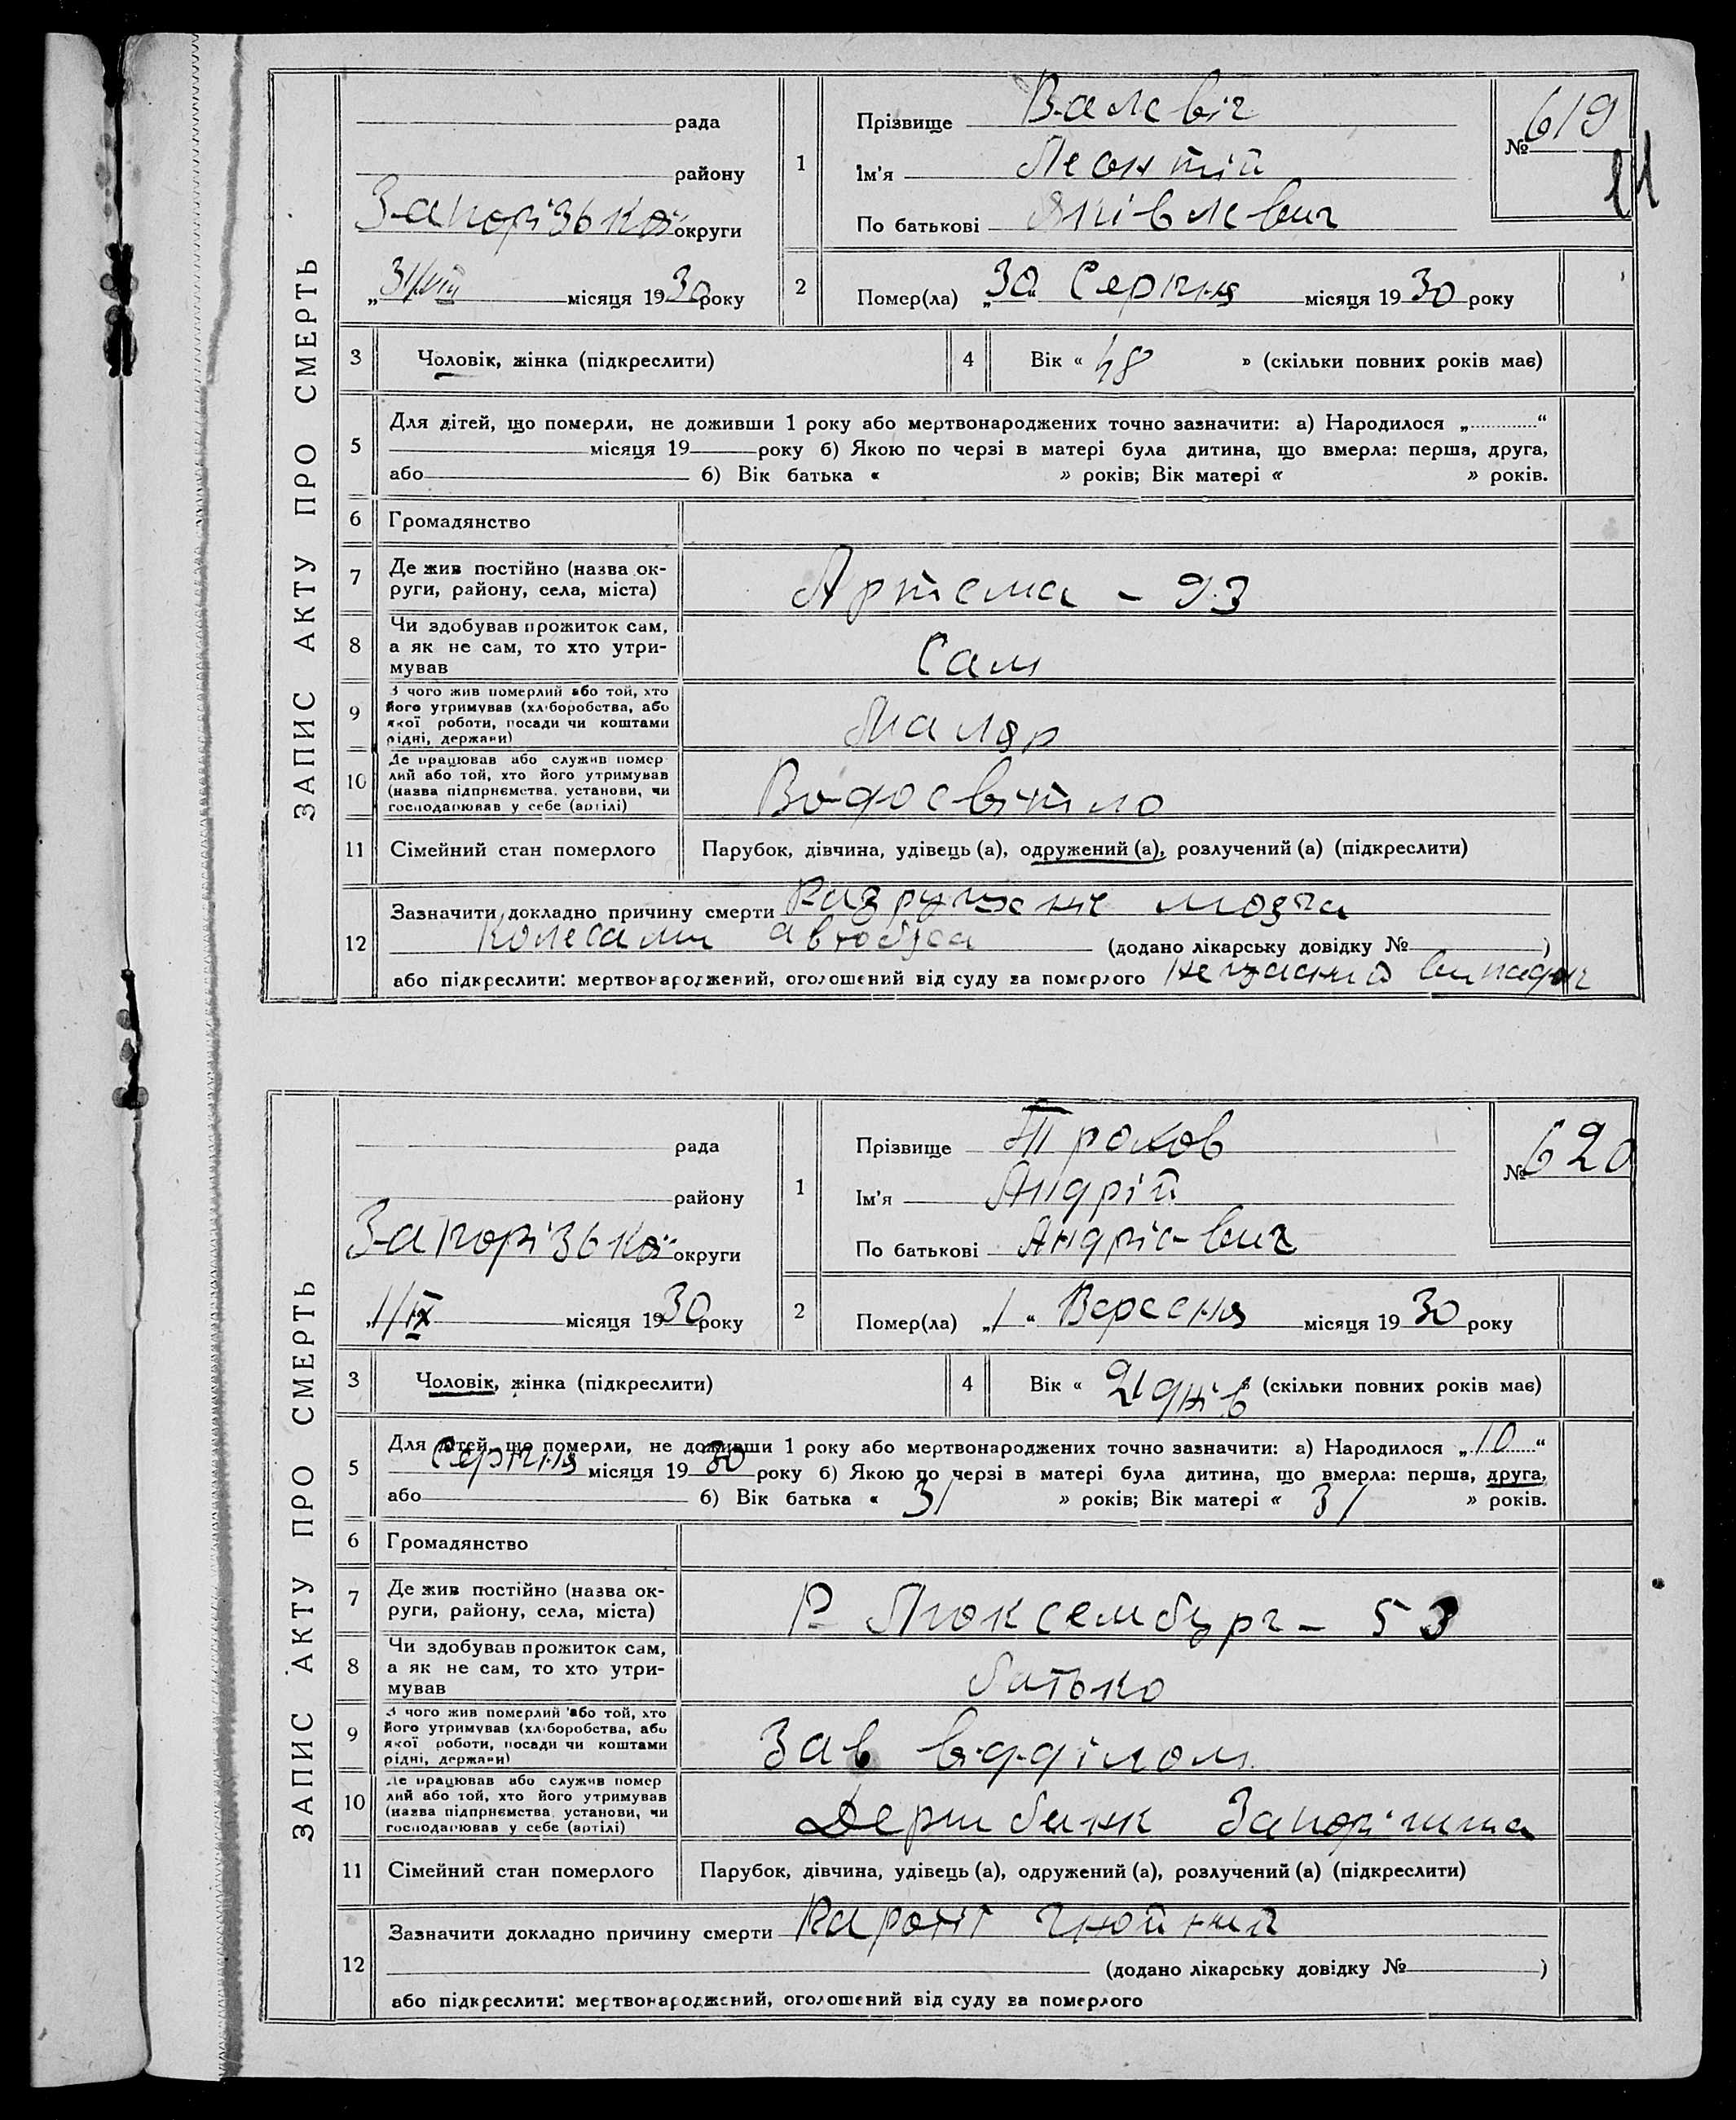 ЗАПИС АКТУ ПРО СМЕРТЬ
рада
району
Запорізької округи
„31/VIII місяця 1930 року
1
Прізвище Валевіч
Ім'я Леонтій
По батькові Яківлевич
№ 619
2
Помер(ла) „30“ Серпня місяця 1930 року
3
Чоловік, жінка (підкреслити)
4
Вік « 48 » (скільки повних років має)
5
Для дітей, що померли, не доживши 1 року або мертвонароджених точно зазначити: а) Народилося „ “
місяця 19 року б) Якою по черзі в матері була дитина, що вмерла: перша, друга,
або б) Вік батька « » років; Вік матері « » років.
6
Громадянство
7
Де жив постійно (назва ок-
руги, району, села, міста)
Артема - 93
8
Чи здобував прожиток сам,
а як не сам, то хто утри-
мував
Сам
9
З чого жив померлий або той, хто
його утримував (хліборобства, або
якої роботи, посади чи коштами
рідні, держави)
Маляр
10
Де працював або служив помер
лий або той, хто його утримував
(назва підприємства, установи, чи
господарював у себе (артілі)
Водосвітло
11
Сімейний стан померлого
Парубок, дівчина, удівець (а), одружений (а), розлучений (а) (підкреслити)
12
Зазначити докладно причину смерти Разрушение мозга
Колесами автобуса (додано лікарську довідку № )
або підкреслити: мертвонароджений, оголошений від суду за померлого Нещасний випадок
ЗАПИС АКТУ ПРО СМЕРТЬ
рада
району
Запорізької округи
„1/IX місяця 1930 року
1
Прізвище
Ім'я Андрій
По батькові Андрієвич
№ 620
2
Помер(ла) „1“ Вересня місяця 1930 року
3
Чоловік, жінка (підкреслити)
4
Вік « 21 днів » (скільки повних років має)
5
Для дітей, що померли, не доживши 1 року або мертвонароджених точно зазначити: а) Народилося „10“
Серпня місяця 1930 року б) Якою по черзі в матері була дитина, що вмерла: перша, друга,
або б) Вік батька « 31 » років; Вік матері « 31 » років.
6
Громадянство
7
Де жив постійно (назва ок-
руги, району, села, міста)
Р. Люксембург - 53
8
Чи здобував прожиток сам,
а як не сам, то хто утри-
мував
батько
9
З чого жив померлий або той, хто
його утримував (хліборобства, або
якої роботи, посади чи коштами
рідні, держави)
Зав відділом
10
Де працював або служив помер
лий або той, хто його утримував
(назва підприємства, установи, чи
господарював у себе (артілі)
Держбанк Запоріжжа
11
Сімейний стан померлого
Парубок, дівчина, удівець (а), одружений (а), розлучений (а) (підкреслити)
12
Зазначити докладно причину смерти Паротіт гнойний
(додано лікарську довідку № )
або підкреслити: мертвонароджений, оголошений від суду за померлого